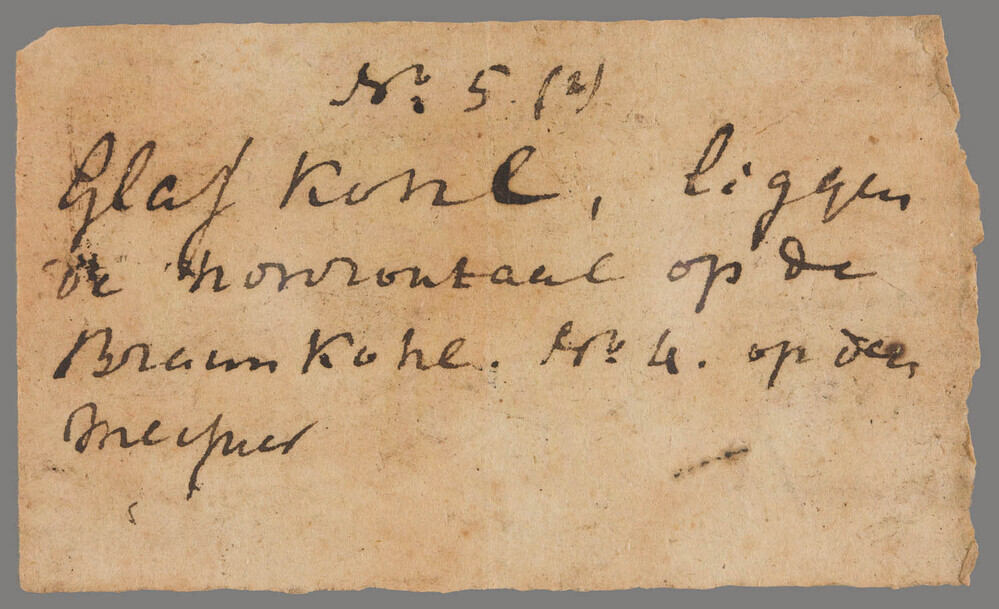 No. 5. (2)
Glas Kohl, liggen
de horizontaal op de
Braun Kohle. No. 4. op den
Meisner